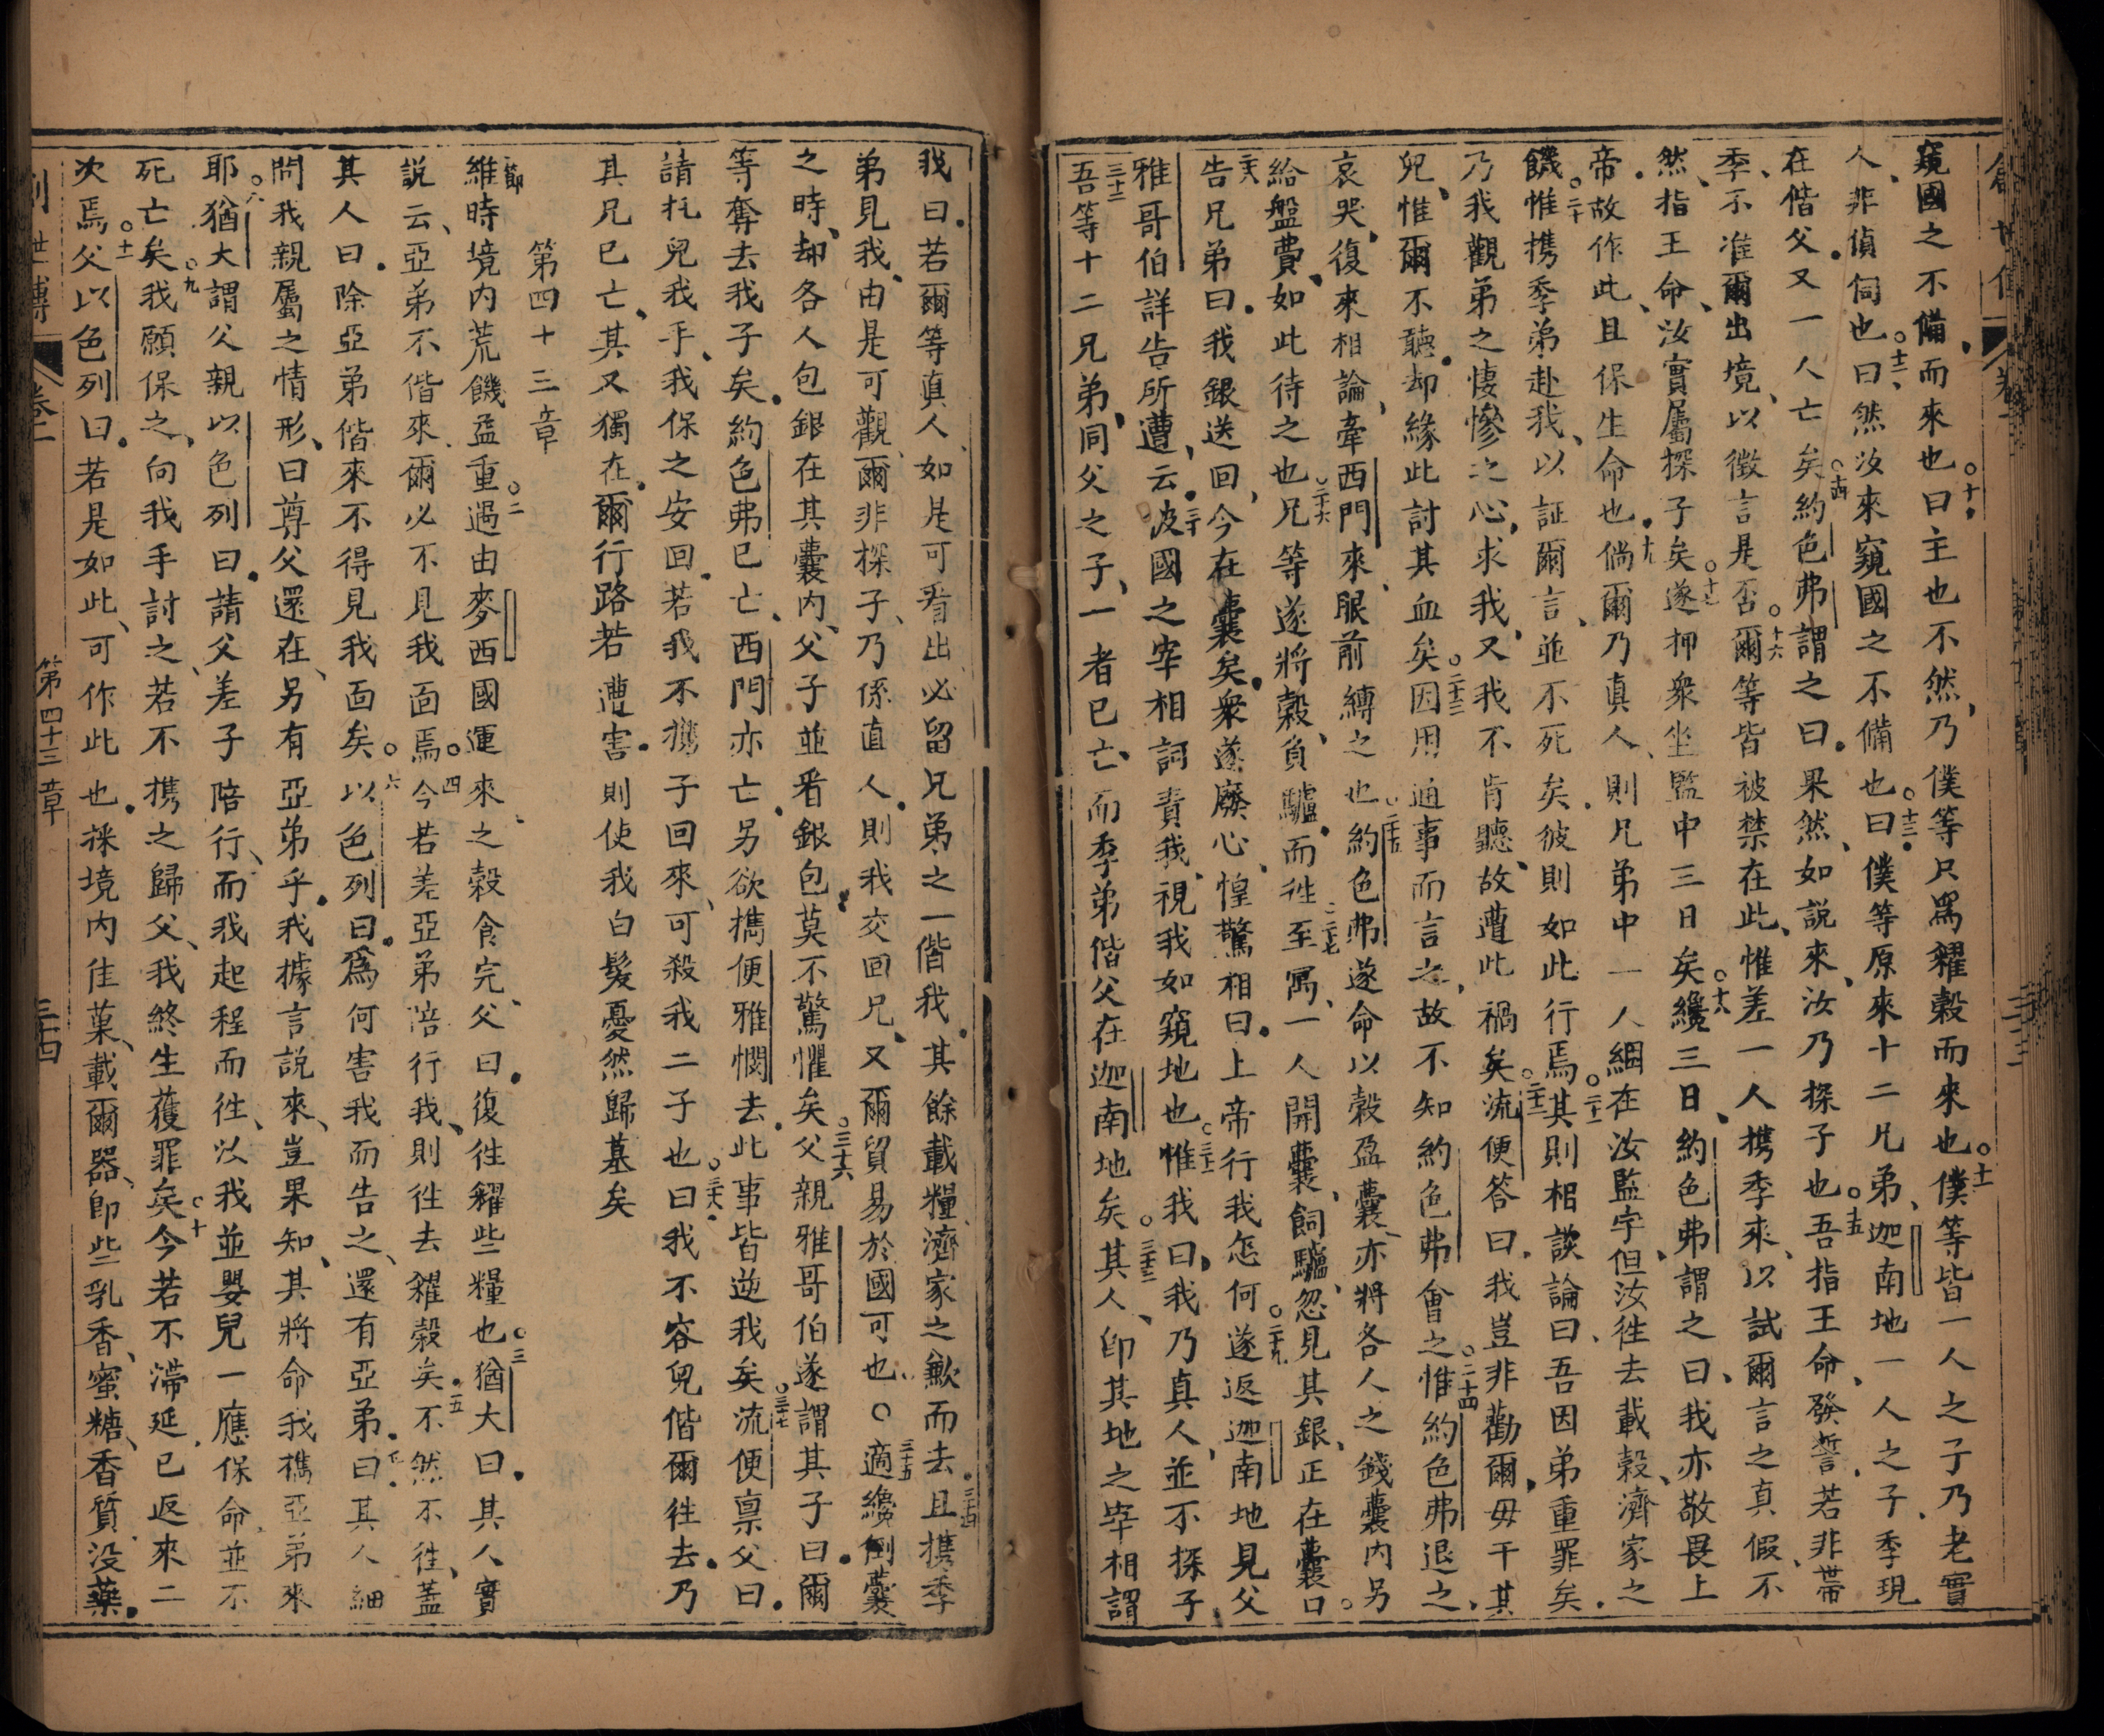 窺國之不備而來也○十曰主也不然乃僕等只爲糴穀而來也○十一僕等皆一人之子乃老實
人非偵伺也○十二曰然汝來窺國之不備也○十三曰僕等原來十二凡弟迦南地一人之子季現
在偕父又一人亡矣○十四約色弗謂之曰果然如說來汝乃探子也○十五吾指王命發誓若非帶
季不准爾出境以徵言是否○十六爾等皆被禁在此惟差一人携季來以試爾言之真假不
然指王命汝實屬探子矣○十七遂押衆坐監中三日矣○十八纔三日約色弗謂之曰我亦敬畏上
帝故作此且保生命也十九倘爾乃真人則兄弟中一人綑在汝監牢但汝徃去載穀濟家之
饑○二十惟携季弟赴我以証爾言並不死矣彼則如此行焉○二十一其則相談論曰吾因弟重罪矣
乃我觀弟之悽慘之心求我又我不肯聽故遭此禍矣○二十二流便答曰我豈非勸爾毋干其
兒惟爾不聽却緣此討其血矣○二十三因用通事而言之故不知約色弗會之○二十四惟約色弗退之
哀哭復來相論牽西門來眼前縛之也○二十五約色弗遂命以穀盈囊亦將各人之錢囊內另
給盤費如此待之也○二十六兄等遂將穀負驢而徃○二十七至寓一人開囊飼驢忽見其銀正在囊口
二十八告兄弟曰我銀送回今在囊矣衆遂廢心惶驚相曰上帝行我怎何○二十九遂返迦南地見父
雅哥伯詳告所遭云三十彼國之宰相詞責我視我如窺地也○三十一惟我曰我乃真人並不探子
三十二吾等十二兄弟同父之子一者已亡而季弟偕父在迦南地矣○三十三其人卽其地之宰相謂
我曰若爾等真人如是可看出必留兄弟之一偕我其餘載糧濟家之歉而去三十四且携季
弟見我由是可觀爾非探子乃係直人則我交回兄又爾貿易於國可也○三十五適纔倒囊
之時却各人包銀在其囊內父子並看銀包莫不驚懼矣○三十六父親雅哥伯遂謂其子曰爾
等奪去我子矣約色弗已亡西門亦亡另欲携便雅憫去此事皆逆我矣○三十七流便禀父曰
請托兒我手我保之安回若我不携子回來可殺我二子也○三十八曰我不容兒偕爾徃去乃
其兄已亡其又獨在爾行路若遭害則使我白髮憂然歸墓矣
第四十三章
節維時境內荒饑益重○二過由麥西國運來之穀食完父曰復徃糴些糧也○三猶大曰其人實
說云亞弟不偕來爾必不見我面焉○四今若差亞弟陪行我則徃去糴穀矣○五不然不徃蓋
其人曰除亞弟偕來不得見我面矣○六以色列曰爲何害我而告之還有亞弟○七曰其人細
問我親屬之情形曰尊父還在另有亞弟乎我據言說來豈果知其將命我携亞弟來
耶○八猶大謂父親以色列曰請父差子陪行而我起程而徃以我並嬰兒一應保命並不
死亡矣○九我願保之向我手討之若不携之歸父我終生獲罪矣○十今若不滯延已返來二
次焉○十一父以色列曰若是如此可作此也採境內佳菓載爾器卽些乳香蜜糖香質沒藥
創世傳
卷一
第四十三章
三十四